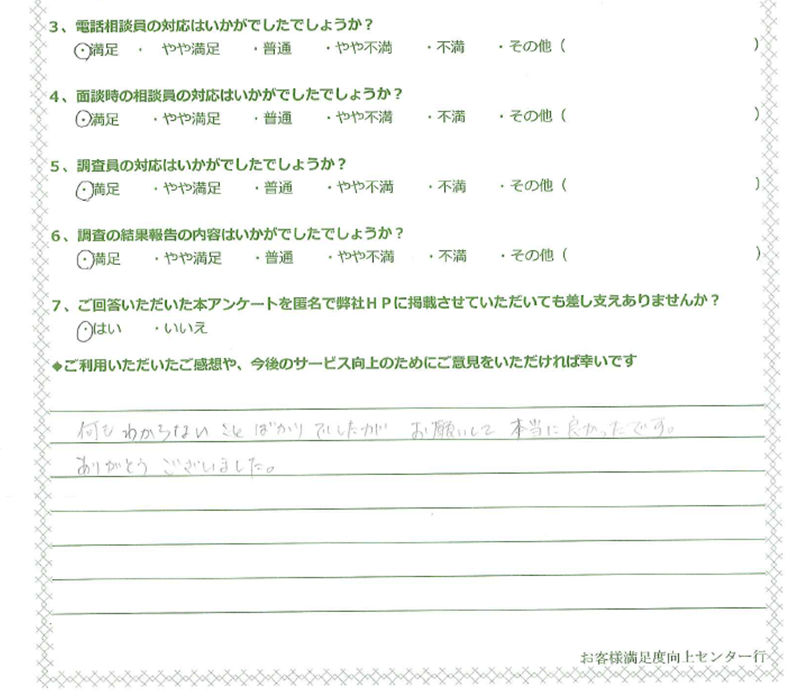 3、電話相談員の対応はいかがでしたでしょうか?
・満足 ・ やや満足 ・普通 ・やや不満 ・不満 ・その他( )
4、面談時の相談員の対応はいかがでしたでしょうか?
・満足 ・やや満足 ・普通 ・やや不満 ・不満 ・その他( )
5、調査員の対応はいかがでしたでしょうか?
・満足 ・やや満足 ・普通 ・やや不満 ・不満 ・その他( )
6、調査の結果報告の内容はいかがでしたでしょうか?
・満足 ・やや満足 ・普通 ・やや不満 ・不満 ・その他( )
7、ご回答いただいた本アンケートを匿名で弊社HPに掲載させていただいても差し支えありませんか?
・はい ・いいえ
◆ご利用いただいたご感想や、今後のサービス向上のためにご意見をいただければ幸いです
何もわからないことばかりでしたが お願いして 本当に良かったです。
ありがとうございました。
お客様満足度向上センター行